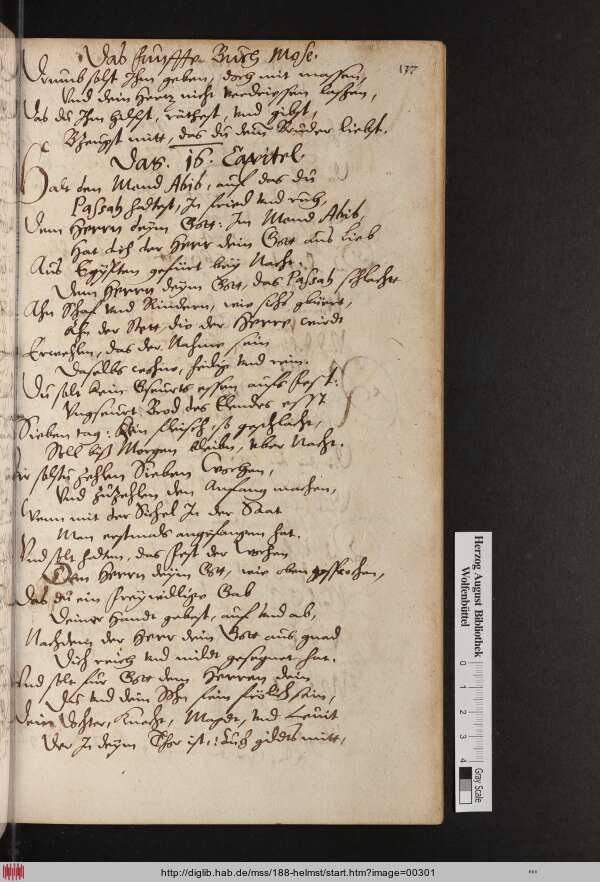 Das fünffte Buch Mose.
177
Drumb solst Ihm geben, doch mit massen,
Und dein Hertz nicht verdriessen lassen,
Das du Ihm hilffst, rathest, und gibst,
Bezeugst mitt, das du dein Bruder liebst.
Das. 16. Capitel.
Halt den Mond Abib, auf das du
Passah haltest, In fried und ruh,
Dem Herrn deym Gott: Im Mond Abib,
Hat dich der Herr dein Gott aus lieb
Aus Egypten gefürt bey Nacht.
Dem Herrn deym Gott, das Passah schlacht
Ahn Schaf und Rindern, wie sichs gbürt,
Ahn der Stett, die der Herre wirdt
Erwehlen, das der Nahme sein
Daselbs wohne, heilig und rein.
Du solt kein Gseurts essen aufs fest:
Ungseurt Brod des Elendes esst
Sieben tag: Kein fleisch, so geschlacht,
Soll biß Morgen bleiben, uber Nacht.
Dir solstu zehlen Sieben Wochen,
Und zuzehlen den Anfang machen,
Wenn mit der Sichel In der Saat
Man erstmals angefangen hat.
Und solt halten, das fest der Wochen
Dem Herrn deym Gott, wie oben gesprochen,
Das du ein freywillige Gab
Deiner Handt gebest, auf und ab,
Nachdem der Herr dein Gott aus gnad
Dich reich und mildt gesegnet hat.
Und solt für Gott dem Herren dein
Du und dein Sohn fein frölich sein,
Deine Tochter, Knecht, Magdt, und Levit
Der In deym Thor ist,
Herzog August Bibliothek
Wolfenbüttel
0 1 2 3 4
Gray Scale
http://diglib.hab.de/mss/188-helmst/start.htm?image=00301